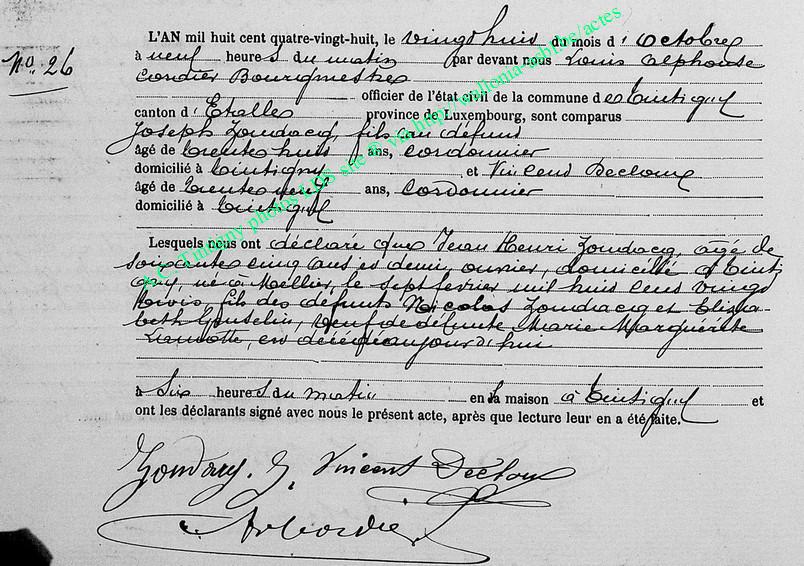 L'AN mil huit cent quatre-vingt-huit, le vingt huit du mois d'Octobre
No. 26
à neuf heures du matin par devant nous Louis Alphonse
Cordier Bourgmestre
officier de l'état civil de la commune de Tintigny
canton d'Etalle province de Luxembourg, sont comparus
Joseph fils au défunt
âgé de trente huit ans, cordonnier
domicilié à Tintigny et Vincent
âgé de trente neuf ans, cordonnier
domicilié à Tintigny
Lesquels nous ont déclaré que Jean Henri agé de
soixante cinq ans et demi, ouvrier, domicilié à Tinti
gny, né à Mellier, le sept février mil huit cent vingt
trois, fils des défunts Nicolas et Elisa
beth Gousselin, veuf de défunte Marie Marguérite
Lamotte, est décédé aujourd'hui
à six heures du matin en sa maison à Tintigny et
ont les déclarants signé avec nous le présent acte, après que lecture leur en a été faite.
J. Vincent
Cordier
A.C. Tintigny photos LDS site ® via http://wallonia-asbl.be/actes